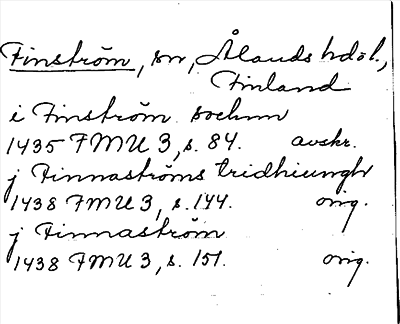 Finström, sn, Ålands hdöl.,
Finland
i Finström sochnn
1435 FMU 3, s. 84. avskr.
j Finnaströms tridhiungh
1438 FMU 3, s. 144. orig.
j Finnaström
1438 FMU 3, s. 151. orig.